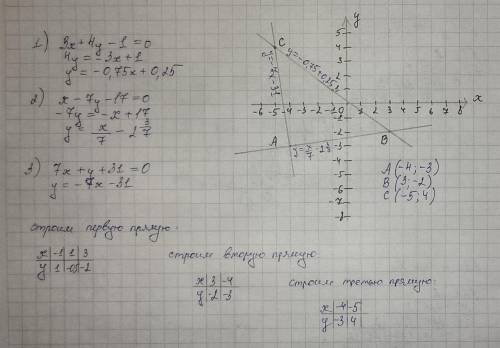 1) 3x+4y-1=0
4y=-3x+1
y=-0,75x+0,25
2) x-7y-17=0
-7y=-x+17
y=x/7-2 3/7
3) 7x+y+31=0
y=-7x-31
y
x
5
4
3
2
1
-6 -5 -4 -3 -2 -1 0 1 2 3 4 5 6 7 8
-1
-2
-3
-4
-5
-6
-7
C
A
B
y=-0,75x+0,25
y=-7x-31
y=x/7-2 3/7
A(-4;-3)
B(3;-2)
C(-5;4)
строим первую прямую:
x -1 1 3
y 1 -0,5 -2
строим вторую прямую:
x 3 -4
y -2 -3
строим третью прямую:
x -4 -5
y -3 4